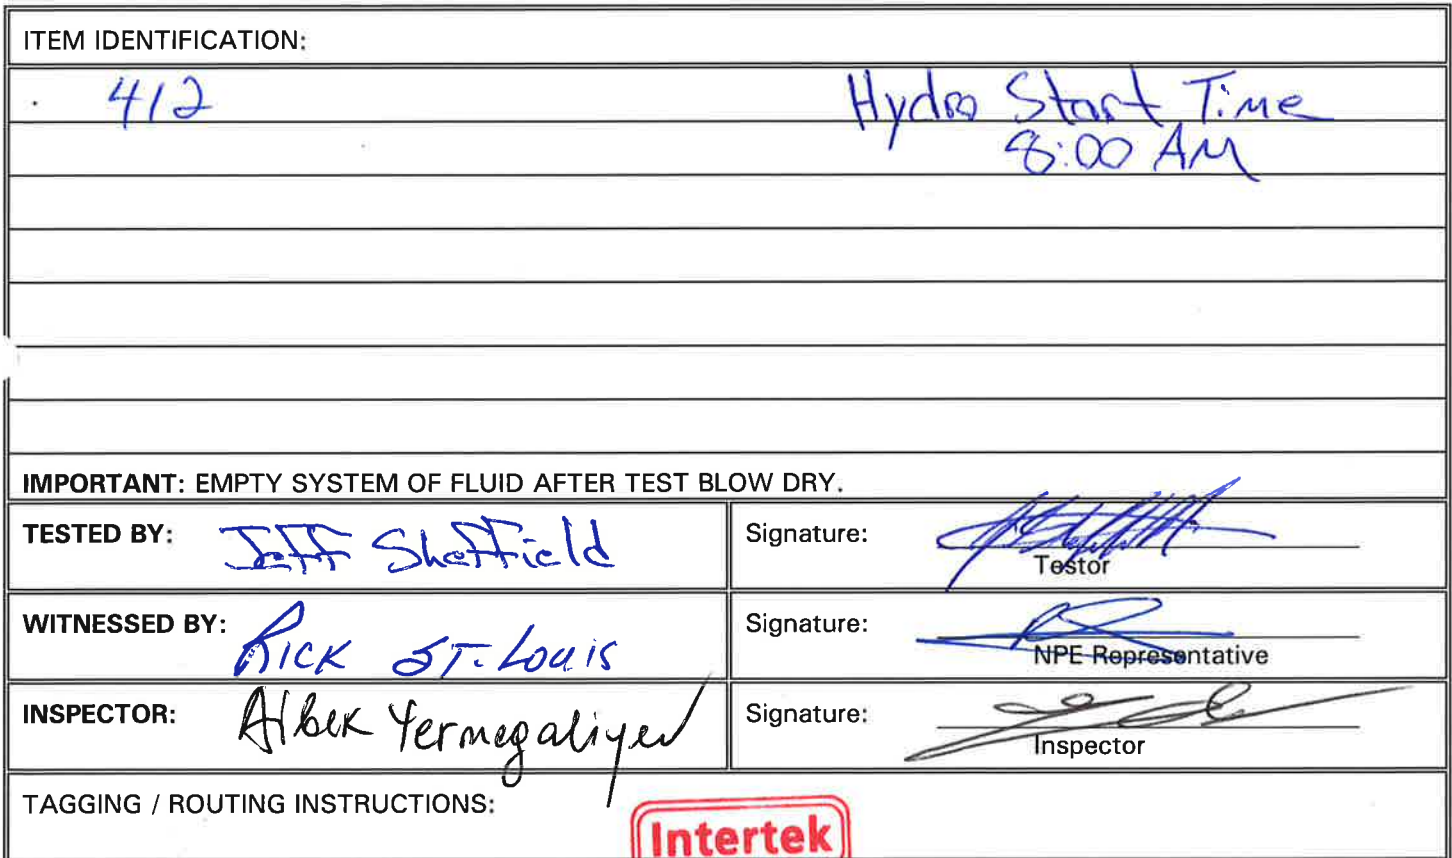 ITEM IDENTIFICATION:
412 Hydro Start Time
8:00 AM
IMPORTANT: EMPTY SYSTEM OF FLUID AFTER TEST BLOW DRY.
TESTED BY: Jeff Sheffield Signature:
Testor
WITNESSED BY: RICK ST. LOUIS Signature:
NPE Representative
INSPECTOR: Albek Yermegaliyev Signature:
Inspector
TAGGING / ROUTING INSTRUCTIONS:
Intertek